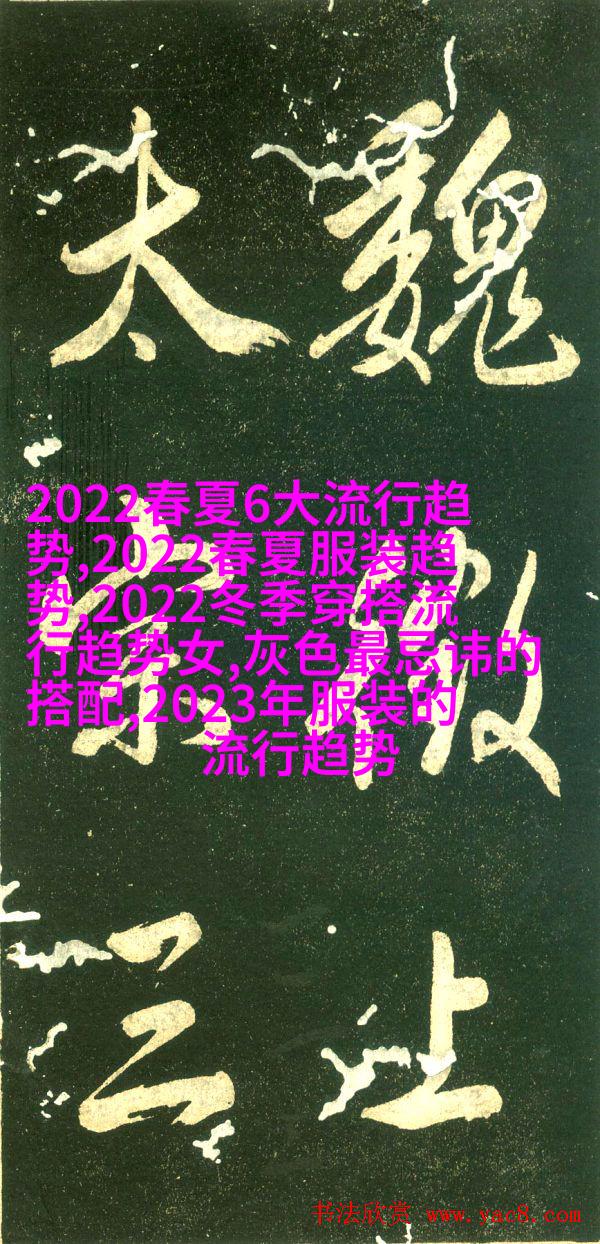 魏徵上
太宗
2022春夏6大流行趋
势,2022春夏服装趋
势,2022冬季穿搭流
行趋势女,灰色最忌讳的
搭配,2023年服装的
流行趋势
书法欣赏 www.yac8.com